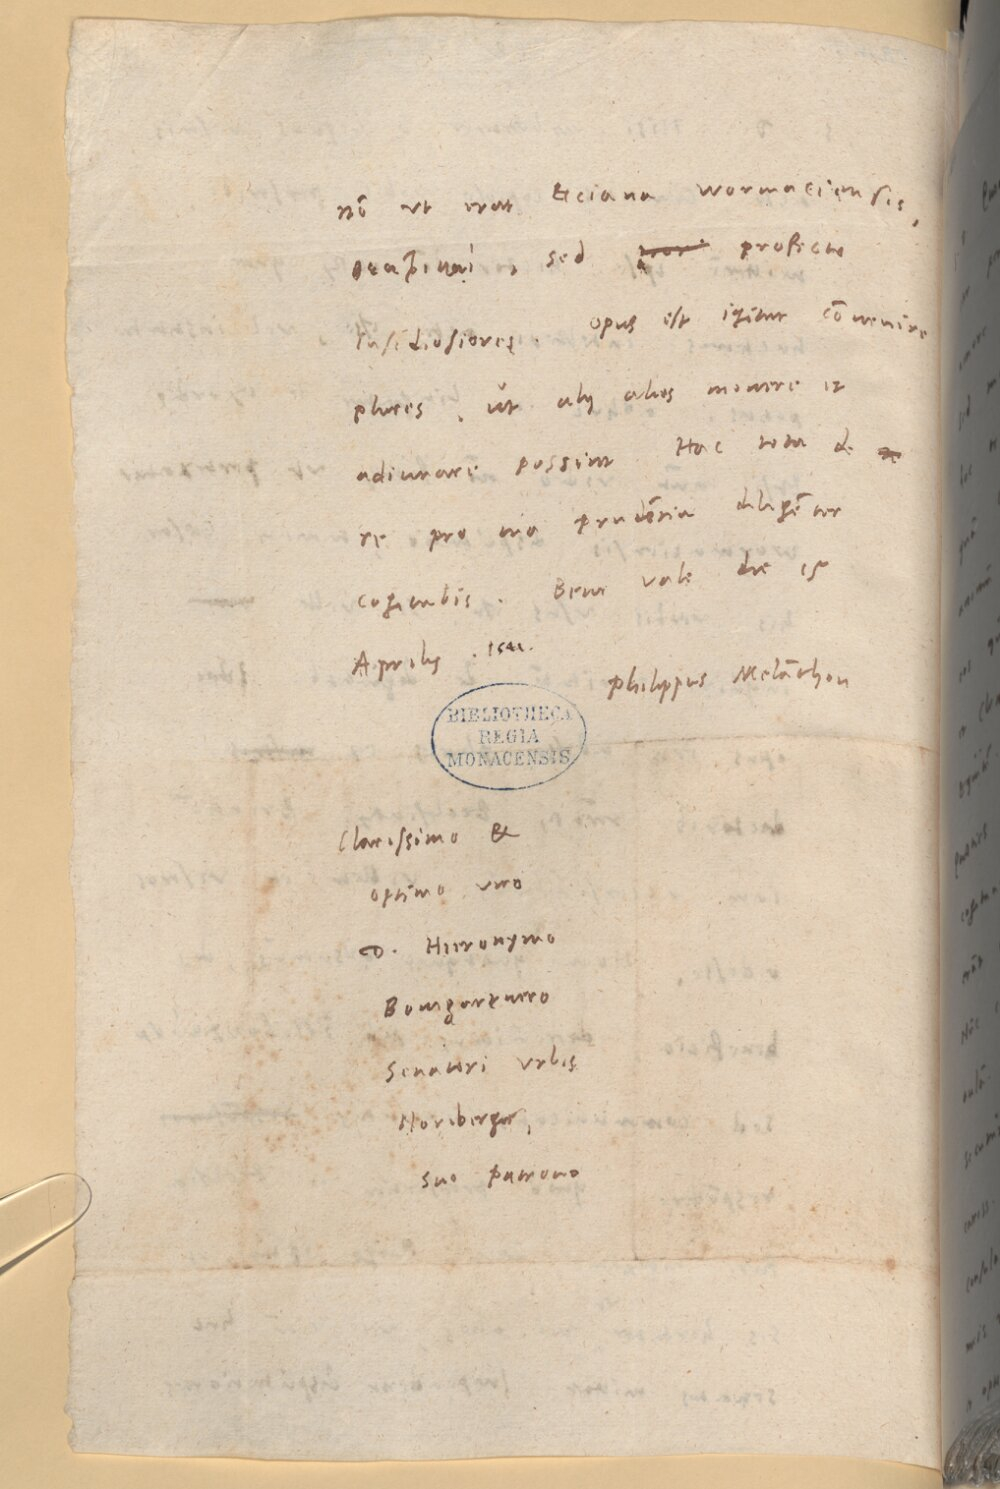 nō ut erat Ecciana wormaciensis,
sed profecto
insidiosiores. opus est igitur cōvenire
plures, ut alij alios monere et
adiuvare possint Hac tota de
re pro tua prudētia diligēter
cogitabis. Bene vale die 15
Aprilis. 1541.
Philippus Melāthon
BIBLIOTHECA
REGIA
MONACENSIS.
Clarissimo &
optimo viro
D. Hieronymo
Bomgartnero
Senatori urbis
Noribergæ,
suo patrono